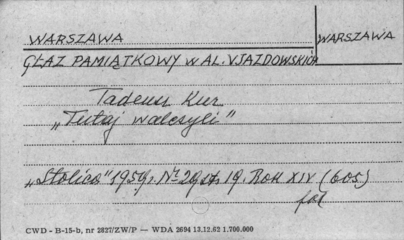 WARSZAWA
WARSZAWA
GŁAZ PAMIĄTKOWY W AL. UJAZDOWSKICH
Tadeusz Kur
„Tutaj walczyli”
„Stolica” 1959r. Nr 29 st. 19. Rok XIV (605)
fot
CWD - B-15-b, nr 2827/ZW/P — WDA 2694 13.12.62 1.700.000